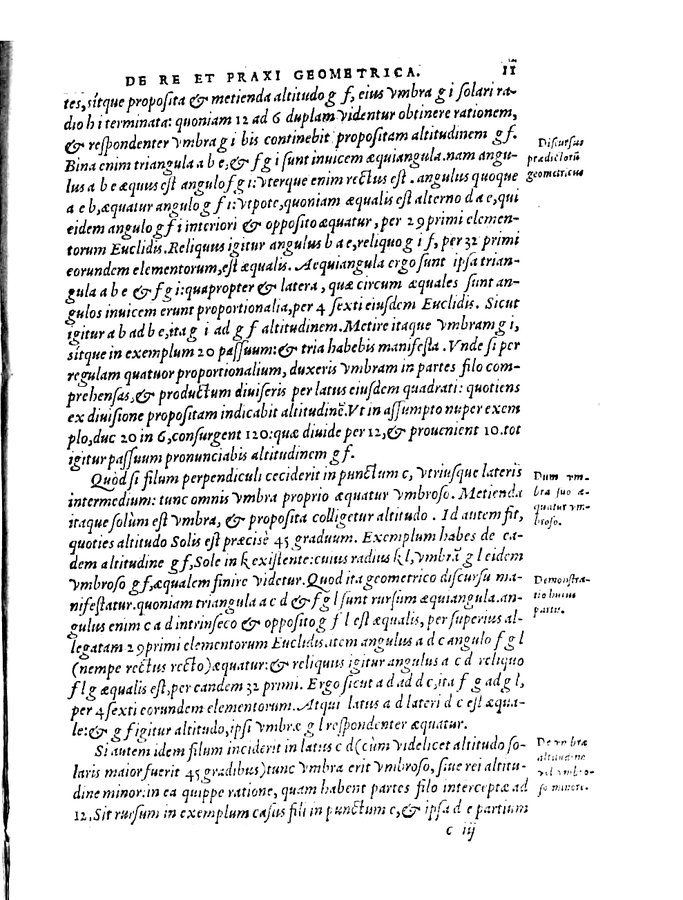 DE RE ET PRAXI GEOMETRICA. 11
tes, sitque proposita & metienda altitudo g f, eius vmbra g i solari ra-
dio h i terminata: quoniam 12 ad 6 duplam videntur obtinere rationem,
& respondenter vmbra g i bis continebit propositam altitudinem g f.
Discursus
prædictorũ
geometricus
Bina enim triangula a b e, & f g i sunt inuicem æquiangula. nam angu-
lus a b e æquus est angulo f g i: vterque enim rectus est. angulus quoque
a e b, æquatur angulo g f i: vtpote, quoniam æqualis est alterno d a e, qui
eidem angulo g f i interiori & opposito æquatur, per 29 primi elemen-
torum Euclidis. Reliquus igitur angulus b a e, reliquo g i f, per 32 primi
eorundem elementorum, est æqualis. Aequiangula ergo sunt ipsa trian-
gula a b e & f g i: quapropter & latera, quæ circum æquales sunt an-
gulos inuicem erunt proportionalia, per 4 sexti eiusdem Euclidis. Sicut
igitur a b ad b e, ita g i ad g f altitudinem. Metire itaque vmbram g i,
sitque in exemplum 20 passuum: & tria habebis manifesta. Vnde si per
regulam quatuor proportionalium, duxeris vmbram in partes filo com-
prehensas, & productum diuiseris per latus eiusdem quadrati: quotiens
ex diuisione propositam indicabit altitudinẽ. Vt in assumpto nuper exem
plo, duc 20 in 6, consurgent 120: quæ diuide per 12, & prouenient 10. tot
igitur passuum pronunciabis altitudinem g f.
Quòd si filum perpendiculi ceciderit in punctum c, vtriusque lateris
intermedium: tunc omnis vmbra proprio æquatur vmbroso. Metienda
itaque solùm est vmbra, & proposita colligetur altitudo. Id autem fit,
quoties altitudo Solis est præcisè 45 graduum. Exemplum habes de ea-
dem altitudine g f, Sole in k existente: cuius radius k l, vmbrã g l eidem
Dum vm-
bra suo æ-
quatur vm-
broso.
vmbroso g f, æqualem finire videtur. Quod ita geometrico discursu ma-
nifestatur. quoniam triangula a c d & f g l sunt rursum æquiangula. an-
Demonstra-
tio huius
partis.
gulus enim c a d intrinseco & opposito g f l est æqualis, per superius al-
legatam 29 primi elementorum Euclidis. item angulus a d c angulo f g l
(nempe rectus recto) æquatur: & reliquus igitur angulus a c d reliquo
f l g æqualis est, per eandem 32 primi. Ergo sicut a d ad d c, ita f g ad g l,
per 4 sexti eorundem elementorum. Atqui latus a d lateri d c est æqua-
le: & g f igitur altitudo, ipsi vmbræ g l respondenter æquatur.
Si autem idem filum inciderit in latus c d (cùm videlicet altitudo so-
laris maior fuerit 45 gradibus) tunc vmbra erit vmbroso, siue rei altitu-
dine minor: in ea quippe ratione, quam habent partes filo interceptæ ad
12. Sit rursum in exemplum casus fili in punctum c, & ipsa d e partium
De vmbra
altitudine
vel vmbro-
so minore.
c iij